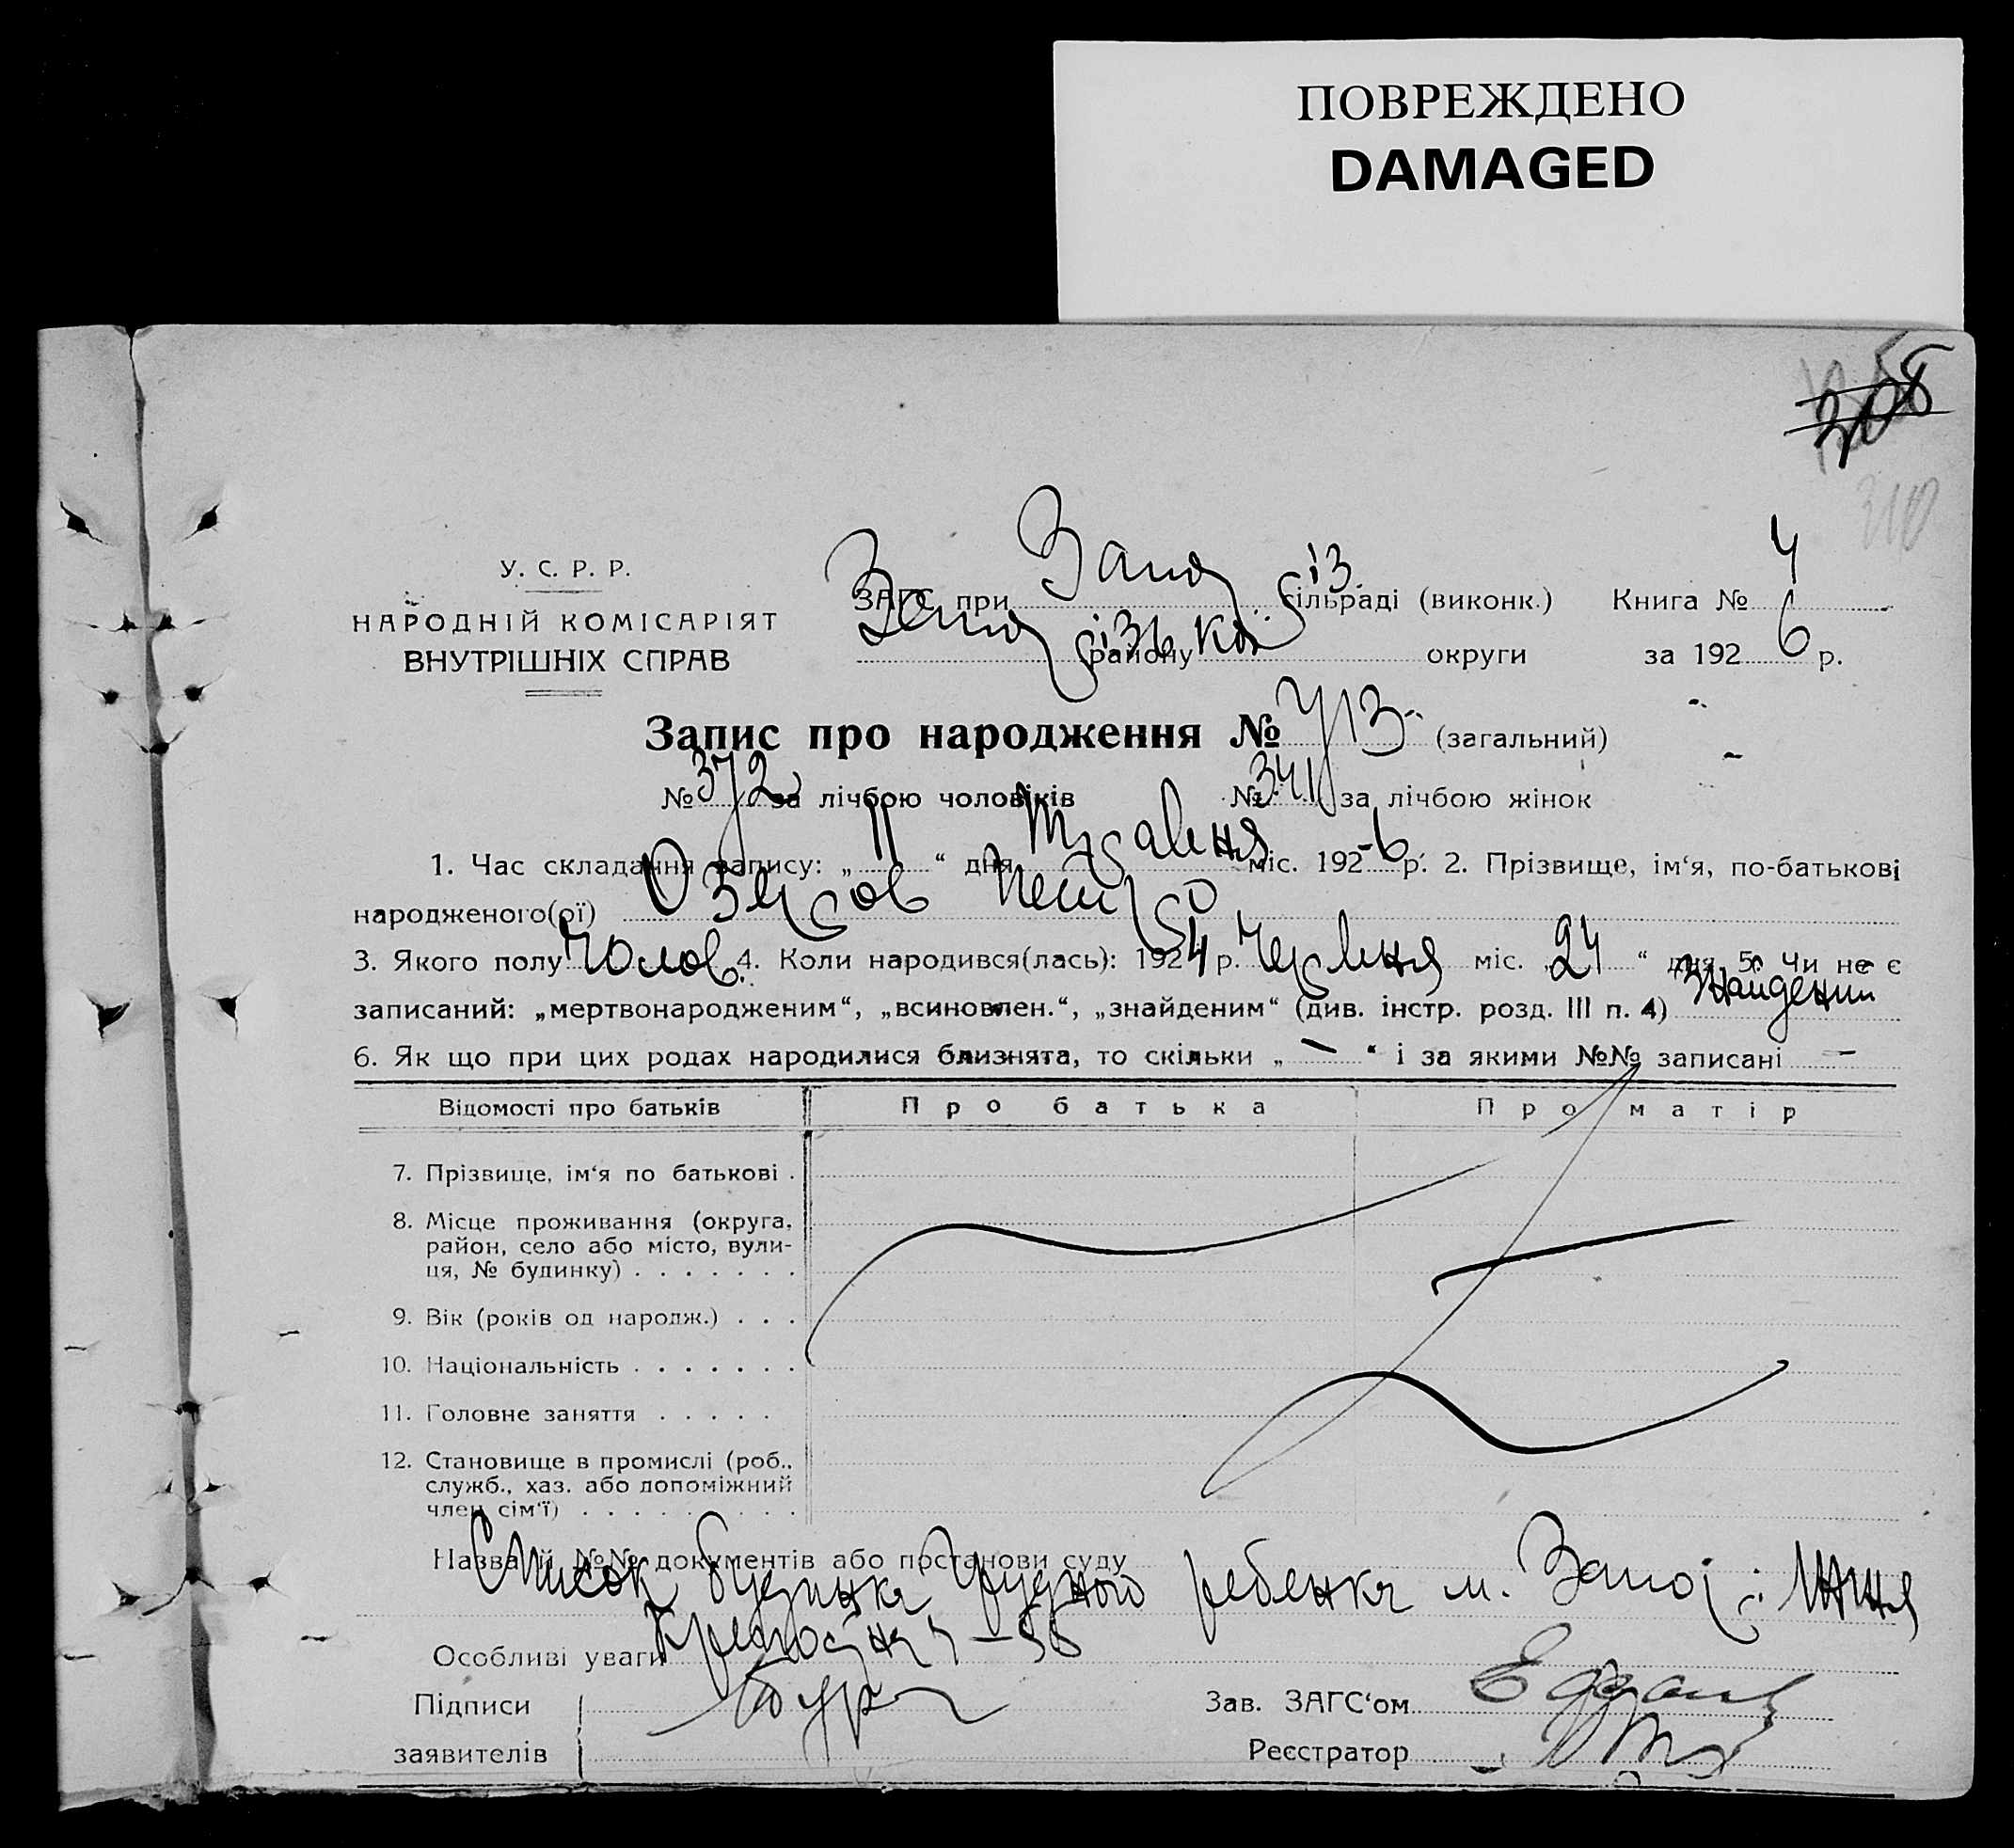 ПОВРЕЖДЕНО
DAMAGED
308
310
У. С. Р. Р.
НАРОДНІЙ КОМІСАРІЯТ
ВНУТРІШНІХ СПРАВ
ЗАГС при Запоріз. сільраді (виконк.) Книга № 4
Запорізької району округи за 1926 р.
Запис про народження № 713 (загальний)
№ 372 за лічбою чоловіків № 341 за лічбою жінок
1. Час складання запису: „11“ дня Травня міс. 1926 р. 2. Прізвище, ім‘я, по-батькові
народженого(ої) Озеров Петро
3. Якого полу Чолов. 4. Коли народився(лась): 1924 р. Червня міс. „24“ дня. 5. Чи не є
записаний: „мертвонародженим“, „всиновлен.“, „знайденим“ (див. інстр. розд. III п. 4) Знайдений
6. Як що при цих родах народилися близнята, то скільки „—“ і за якими №№ записані —
Відомості про батьків Про батька Про матір
7. Прізвище, ім‘я по батькові .
8. Місце проживання (округа,
район, село або місто, вули-
ця, № будинку) . . . . . . .
9. Вік (років од народж.) . . .
10. Національність . . . . . . .
11. Головне заняття . . . . .
12. Становище в промислі (роб.,
служб., хаз. або допоміжний
член сім‘ї) . . . . . . . . .
Назва й №№ документів або постанови суду
Список будинка грудного ребенка м. Запоріжжя
Особливі уваги
Підписи
заявителів
Зав. ЗАГС‘ом
Реєстратор